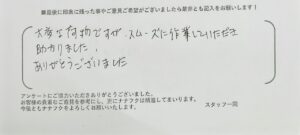 ■最後に印象に残った事やご意見ご希望がございましたら是非とも記入をお願いします！
大変な荷物ですが、スムーズに作業していただき
助かりました。
ありがとうございました
アンケートにご協力いただきありがとうございました。
お客様の貴重なご意見を参考にし、更にナナフクは精進してまいります。
今後ともナナフクをよろしくお願いいたします。
スタッフ一同